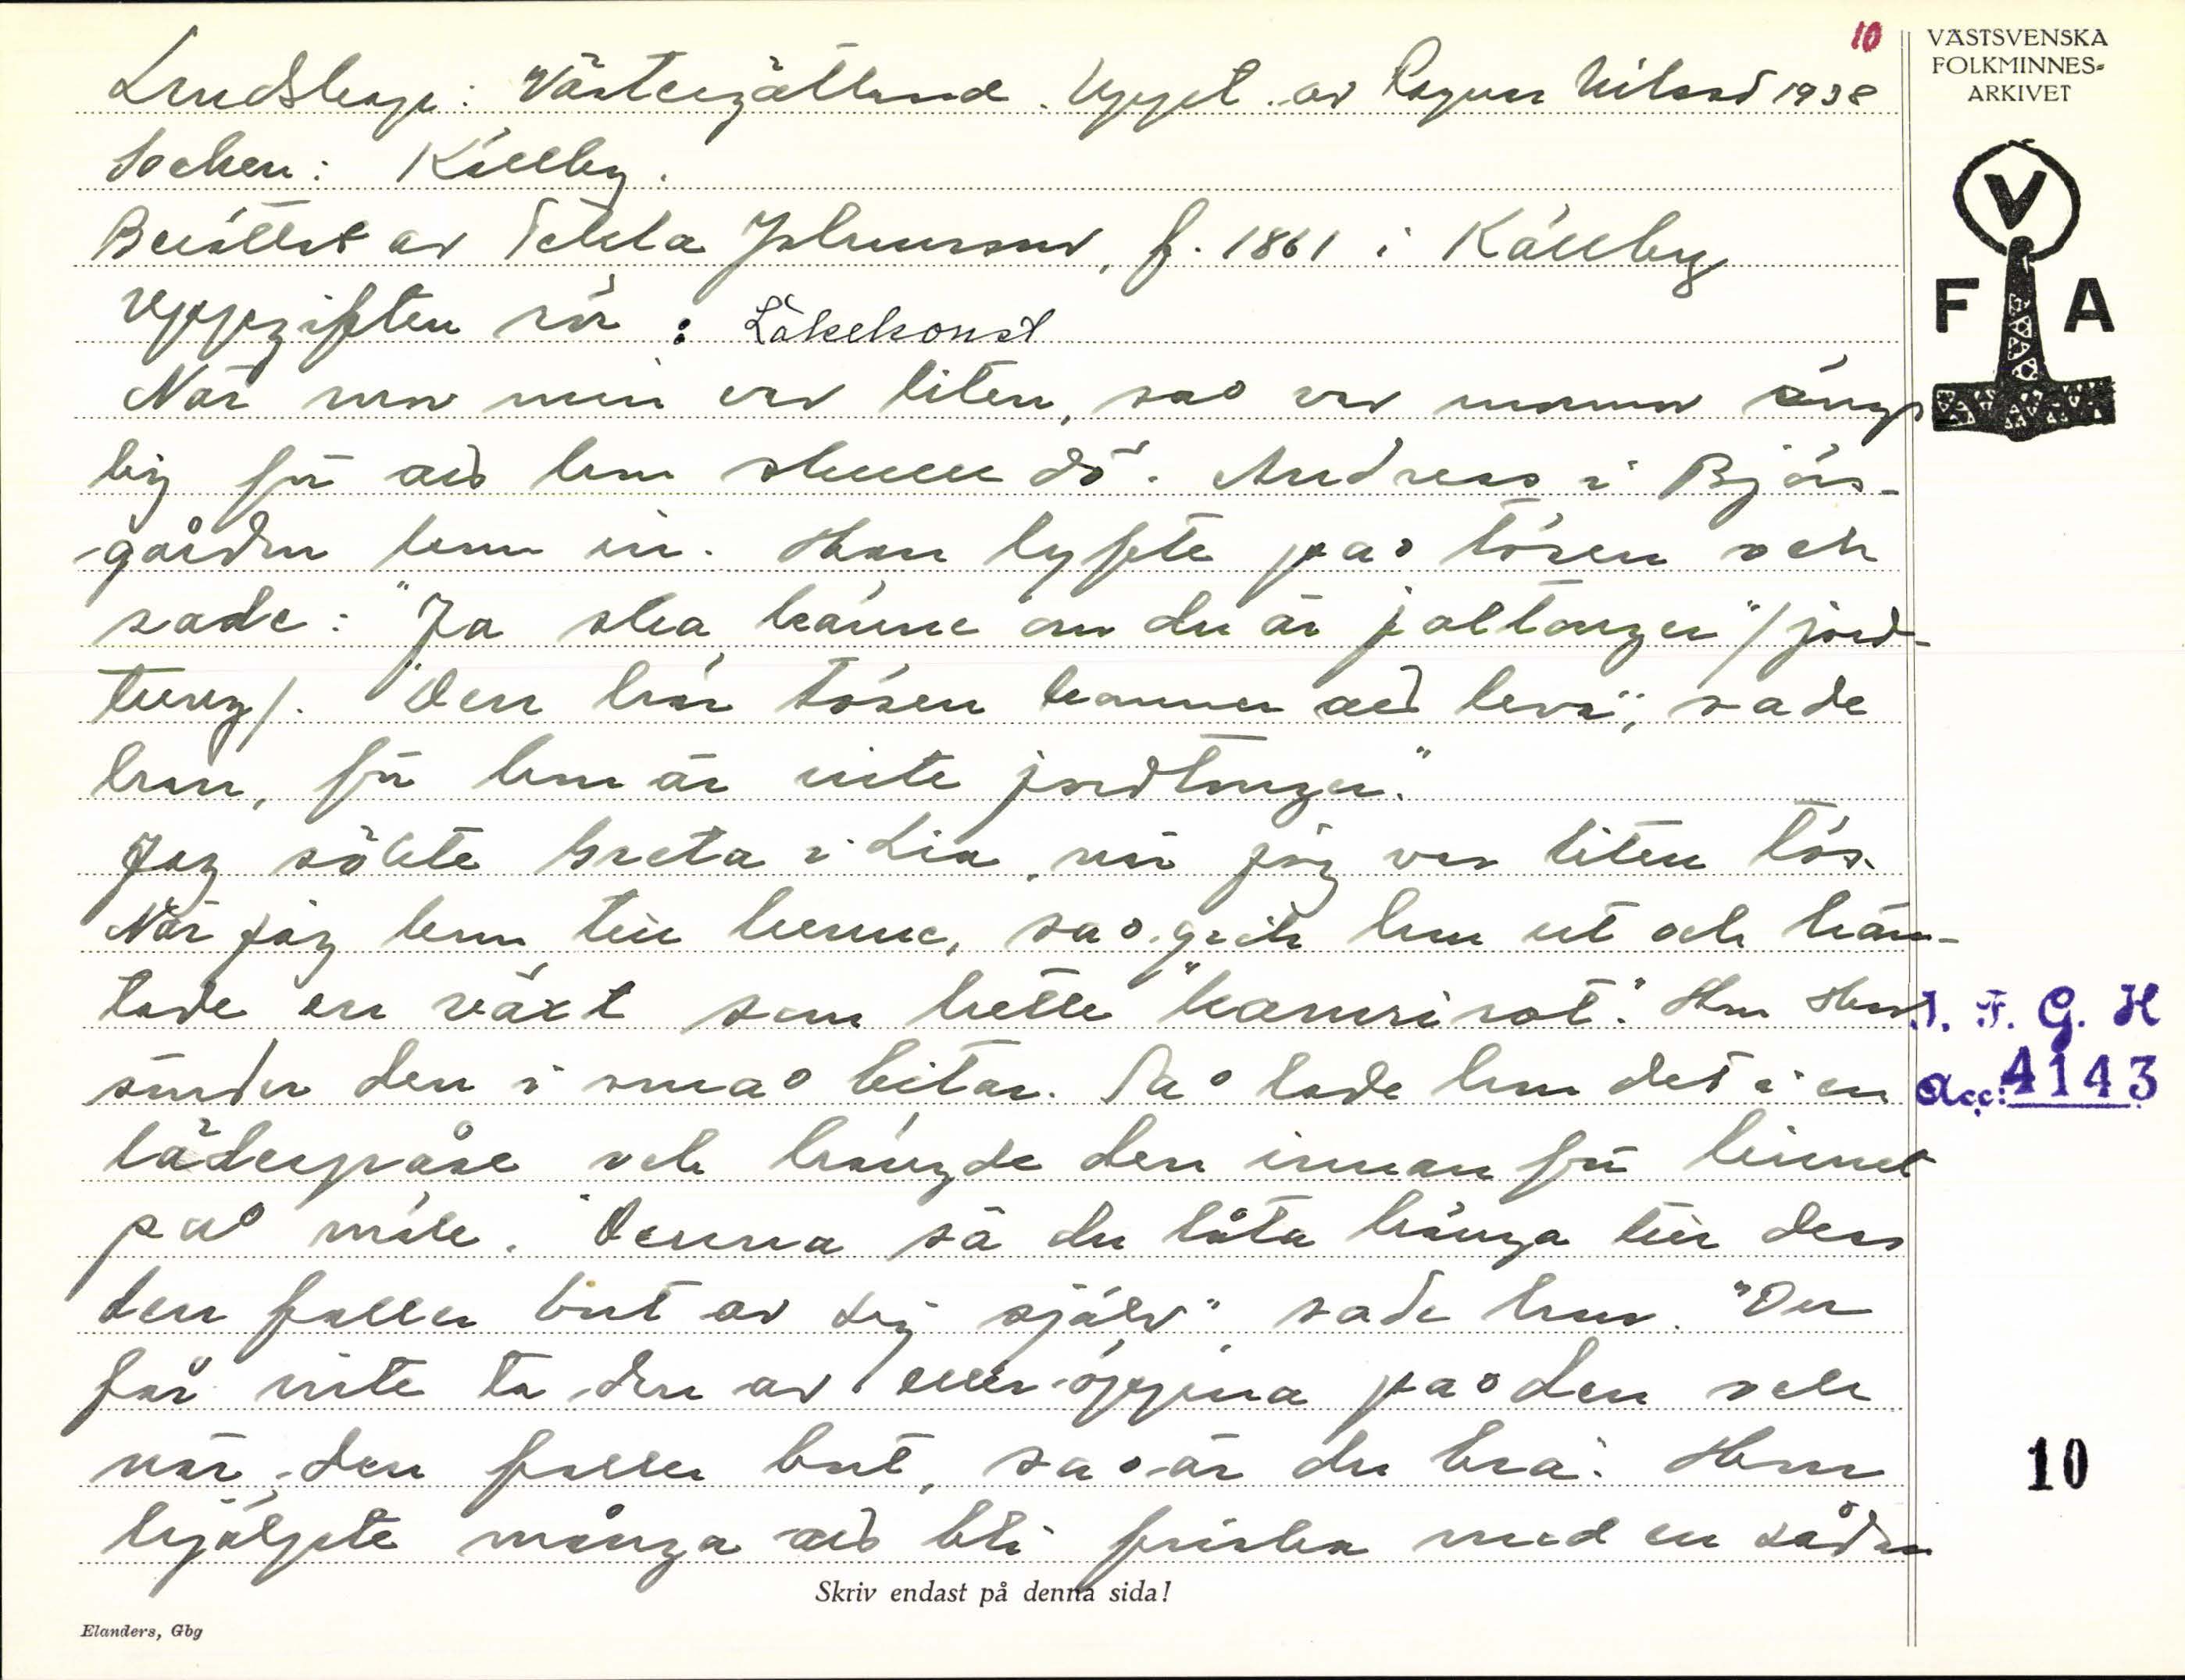 10
VÄSTSVENSKA
FOLKMINNES=
ARKIVET
Landskap: Västergötland. Uppt. av Ragnar Nilsson 1938
Socken: Källby.
Berättat av Tekla Johansson, f. 1861 i Källby
Uppgiften rör: Läkekonst
V
F A
När mor min var liten, så var mamma ängs
lig för att hon skulle dö. Andreas i Björs-
gården kom in. Han lyfte på tösen och
sade: "Ja ska känne om du är joltonger" /jord-
tung/. "Den här tösen kommer att leva", sade
han, för hon är inte jordtonger."
Jag sökte Greta i Lia, när jag var liten tös.
När jag kom till henne, så gick hon ut och häm-
tade en växt som hette "kamrirot." Hon skar
sönder den i små bitar. Så lade hon det i en
läderpåse och hängde den innan för linnet
på mäk. "Denna sä du låta hänga till dess
den faller bort av sig själv" sade hon. "Du
får inte ta den av eller öppna på den och
när den faller bort, så är du bra. Hon
hjälpte många att bli friska med en sådan
I. F. G. H
Acc: 4143
10
Skriv endast på denna sida!
Elanders, Gbg